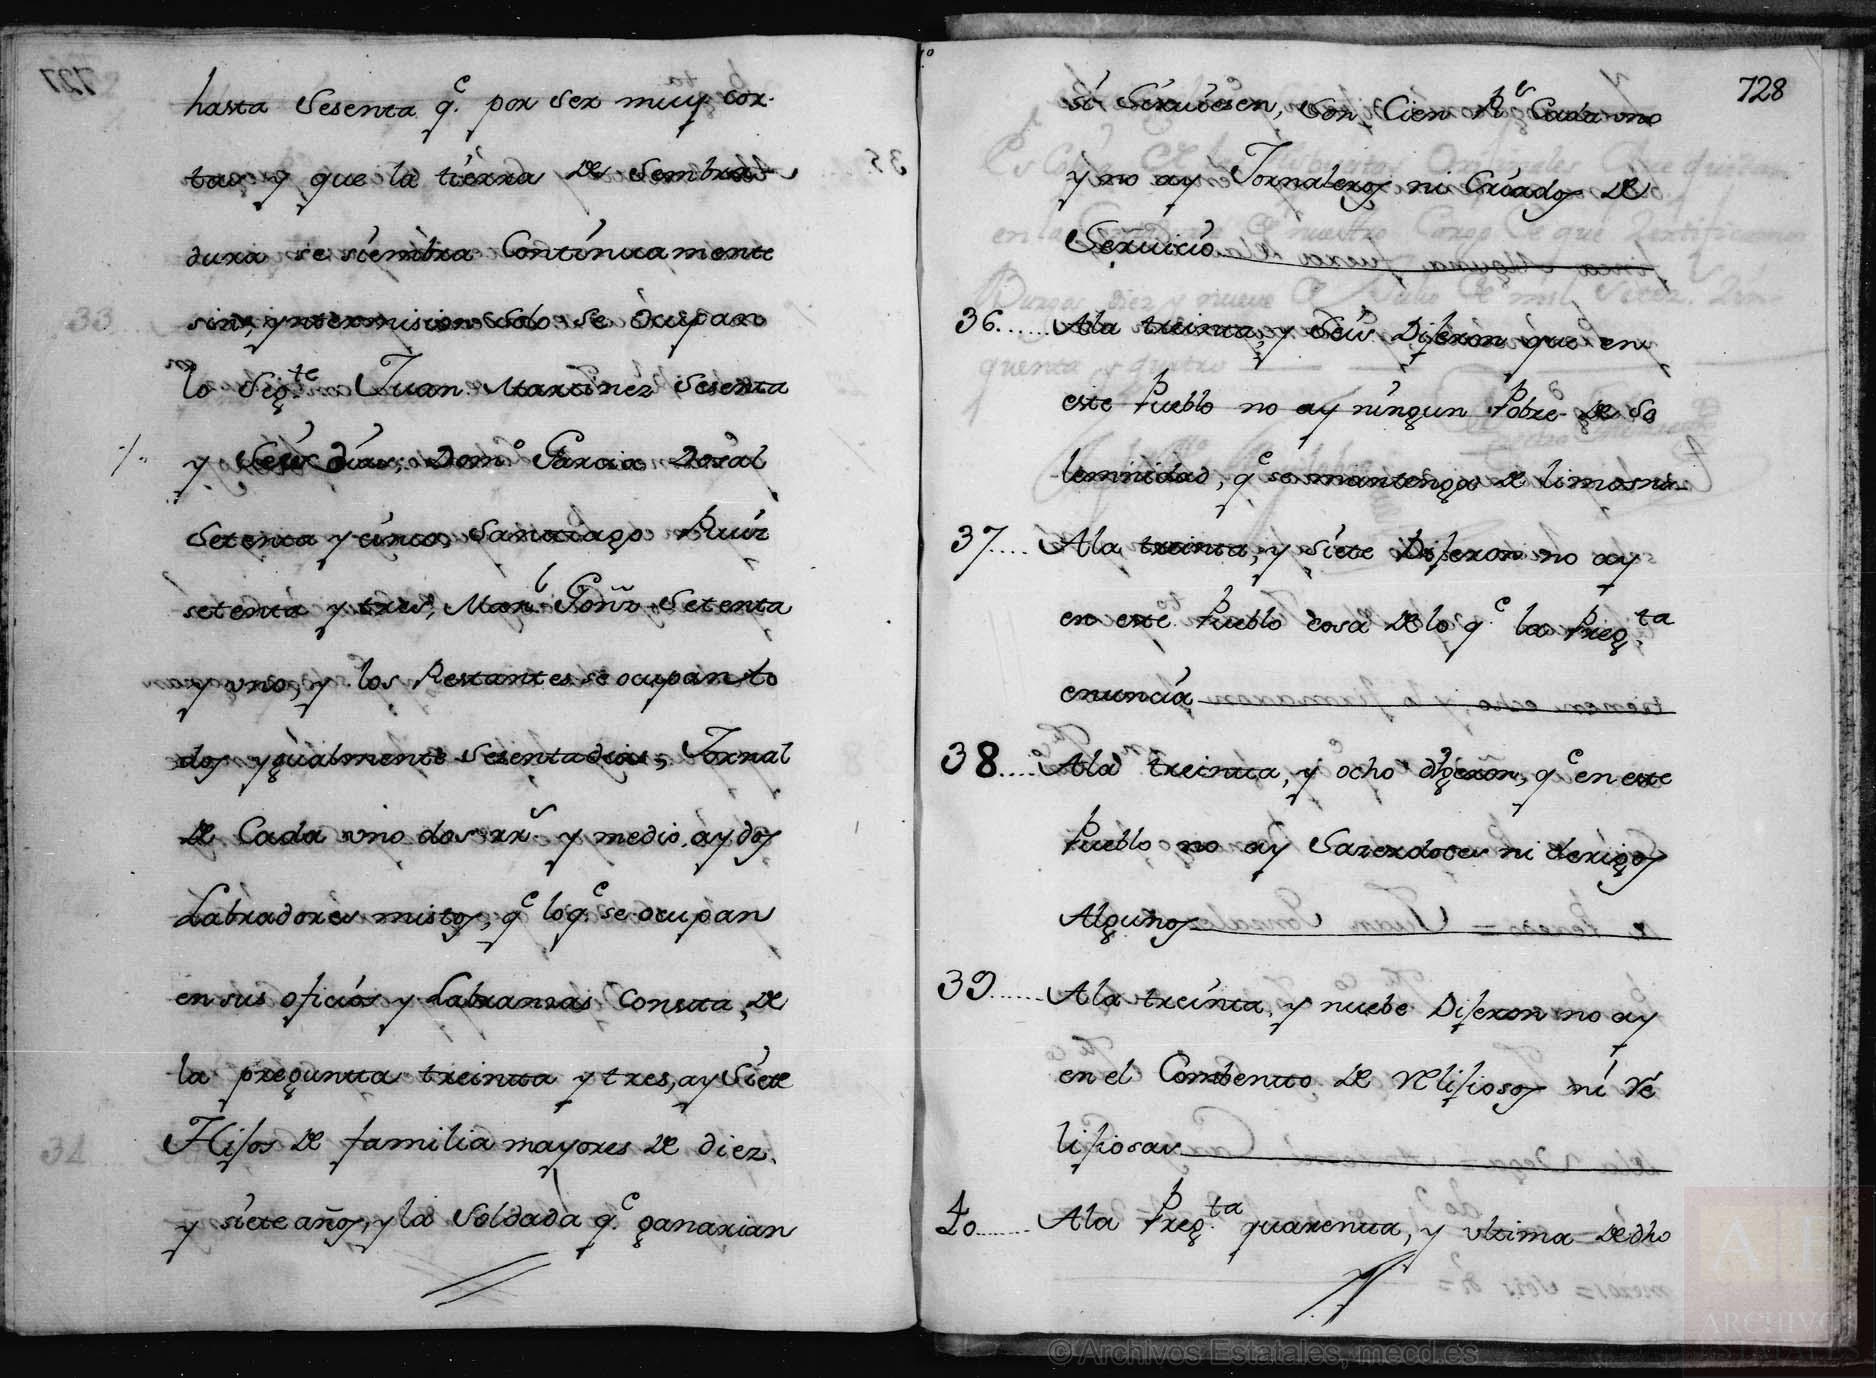 hasta Sesenta q.e por ser muy cor-
tas y que la tierra de Sembra-
dura se siembra Continuamente
sin yntermision solo se ocupan
lo Sig.te Juan Martinez Sesenta
y Seis dias, Dom.o Garcia Doral
Setenta y cinco, Santiago Ruiz
setenta y tres, Man.l Gonz Setenta
y uno, y los Restantes se ocupan to
dos ygualmente Sesenta dias, Jornal
de Cada uno dos rr.s y medio, ay dos
Labradores mistos, q.e loq.e se ocupan
en sus oficios y Labranzas Consta, de
la pregunta treinta y tres, ay Siete
Hijos de familia mayores de diez
y siete años, y la Soldada q.e ganarian
728
si Sirviesen, son Cien R.s Cada uno
y no ay Jornaleros ni Criados de
Servicio
36...... Ala treinta, y Seis Dijeron que en
este Pueblo no ay ningun Pobre de So
lemnidad, q.e se mantenga de limosna
37.... Ala treinta, y siete Dijeron no ay
en este Pueblo cosa de lo q.e la Preg.ta
enuncia
38.... Ala treinta, y ocho digeron, q.e en este
Pueblo no ay Sacerdotes ni clerigos
Algunos
39...... Ala treinta, y nuebe Dijeron no ay
en el Combento de Relijiosos ni Re
lijiosas
40...... Ala Preg.ta quarenta, y ultima de dho
© Archivos Estatales, mecd.es
A E
ARCHIVOS
ESTATALES